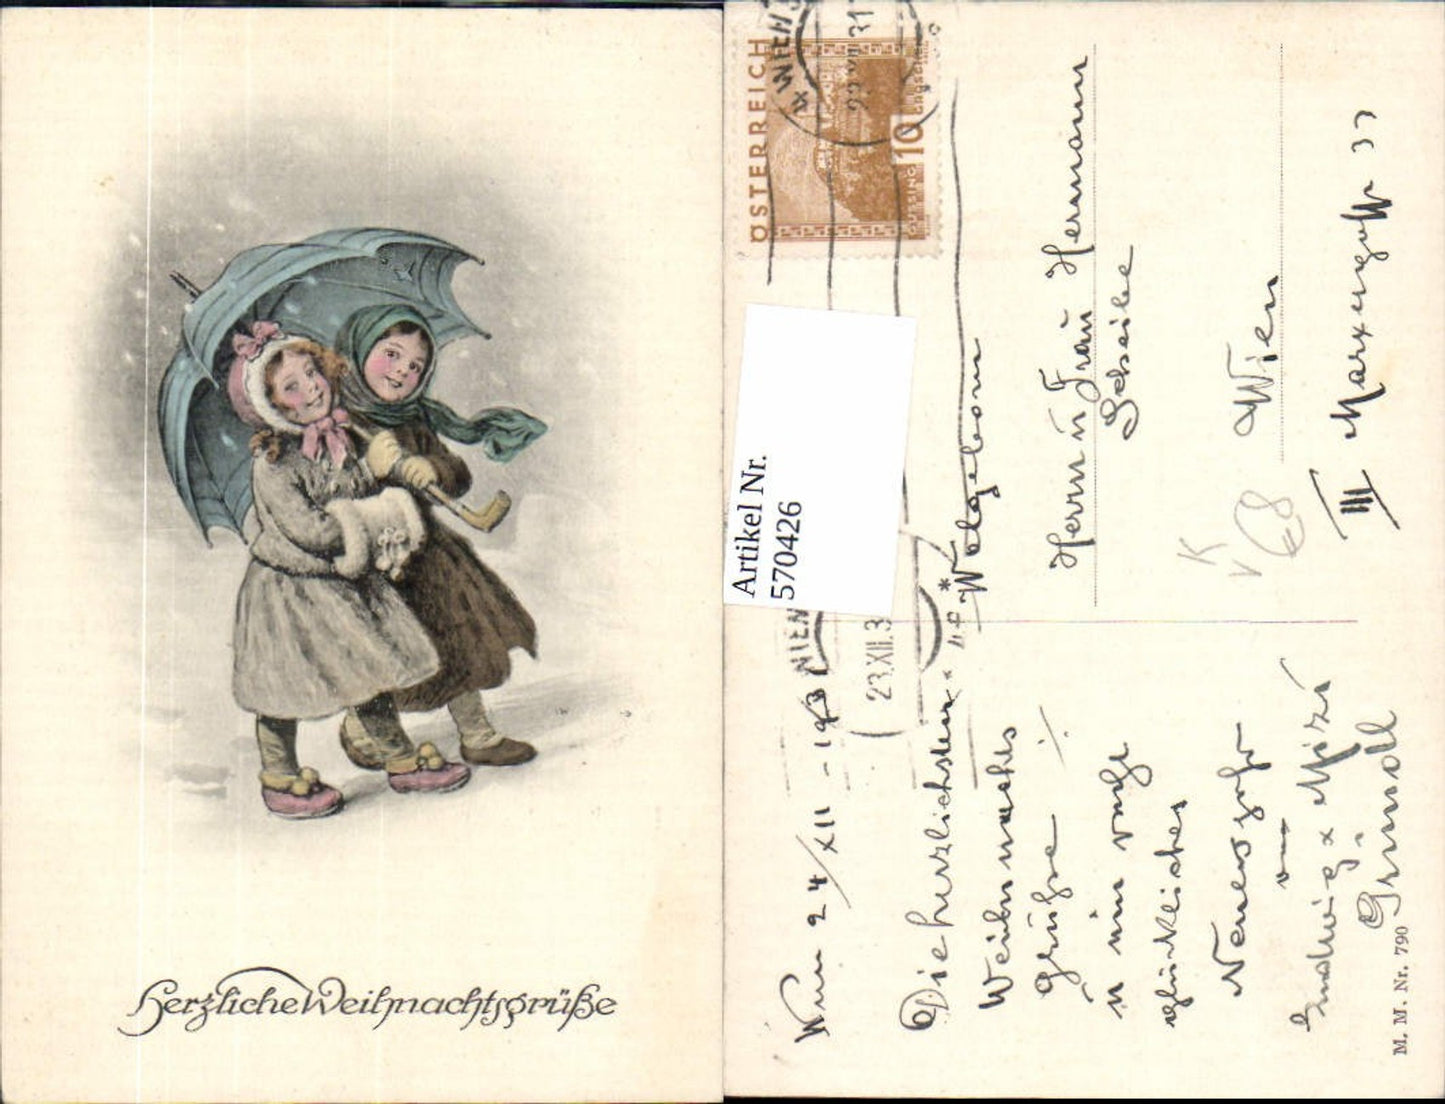 Herzliche Weihnachtsgrüße
ÖSTERREICH
GÜSSING
10
GROSCHEN
WIEN
23.XII.31
WIEN
23.XII.3
Artikel Nr.
570426
Wien 24/XII - 1931
Die herzlichsten
Weihnachts
Grüße
u ein recht
glückliches
Neues Jahr
von
Ludwig & Mizzi
Grimoll
Wohlgeborn
Herrn u Frau Hermann
Scheibe
Wien
III Marxergasse 37
M. M. Nr. 790